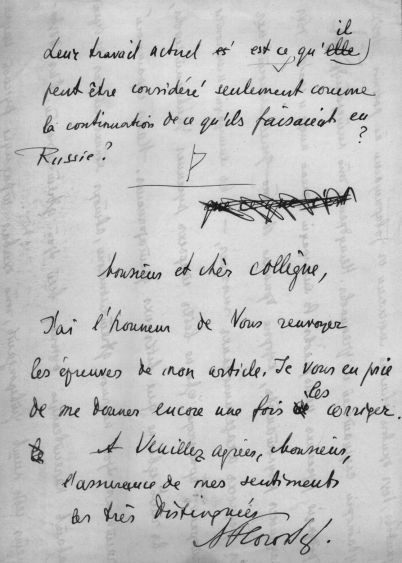 il
leur travail actuel est ce qu'elle
peut être considéré seulement comme
la continuation de ce qu'ils faisaient en
Russie?
?
Monsieur et cher collègue,
J'ai l'honneur de Vous renvoyer
les épreuves de mon article. Je vous en prie
les
de me donner encore une fois corriger.
Veuillez agréer, Monsieur,
l'assurance de mes sentiments
les très distingués